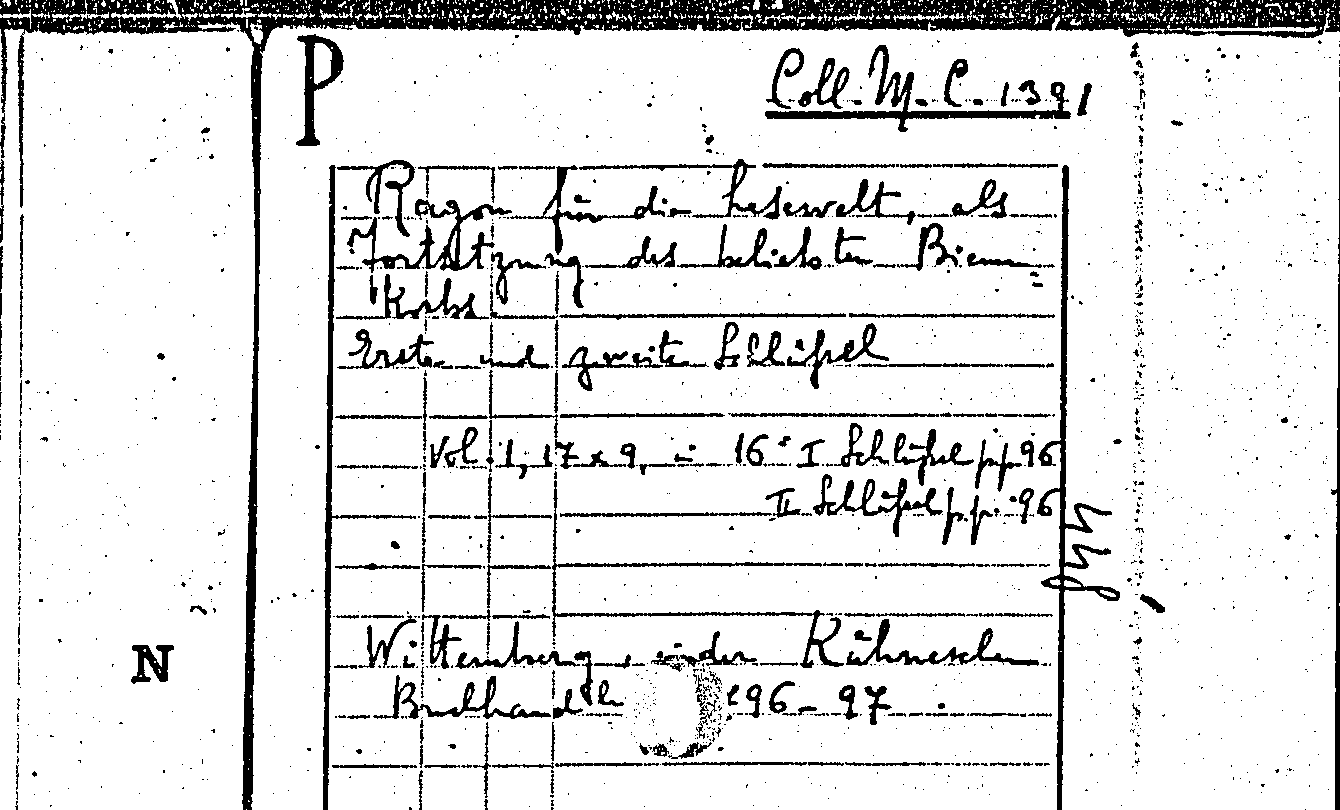 P
Coll. M. C. 1391
Ragon für die Lesewelt, als
Fortsetzung des beliebten Bienen=
Korbs
Erste und zweite Schlüssel
Vol. 1, 17 x 9, in 16° I Schlüssel pp. 96
II Schlüssel pp. 96
N
Wittemberg, in der Kühneschen
Buchhand 96 - 97